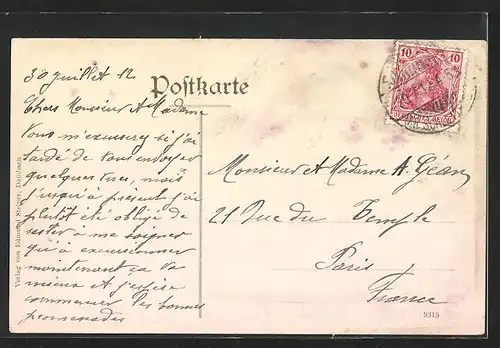 30 juillet 12
Postkarte
Chers Monsieur et Madame
Vous m'excuserez si j'ai
tardé de vous envoyer
quelques vues, mais
jusqu'à présent j'ai
plutôt été obligé de
rester à me soigner
qu'à excursionner
maintenant ça va
mieux et j'espère
commencer les bonnes
promenades
Monsieur et Madame A. Géan
21 Rue du Temple
Paris
France
10 10
DEUTSCHES REICH
Verlag von Edmund
9315